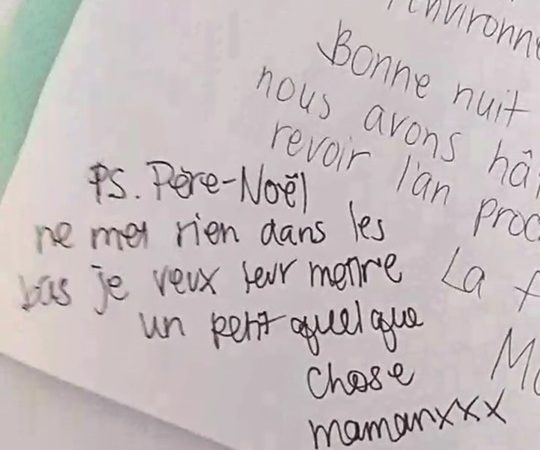 l'environne
Bonne nuit
nous avons hâ
revoir l'an proc
La f
Ma
PS. Père-Noël
ne met rien dans les
bas je veux leur mettre
un petit quelque
chose
mamanxxx